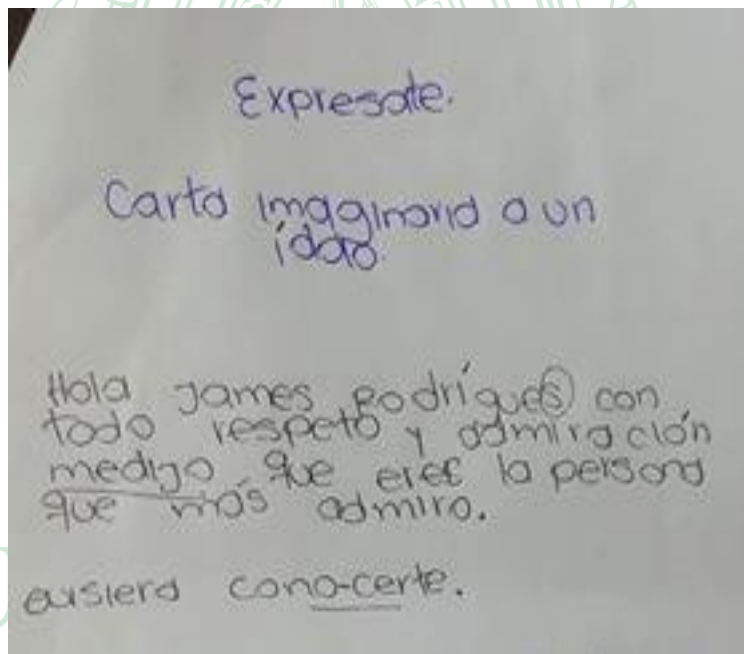 Expresate.
Carta imaginaria a un
ídolo.
Hola James Rodrígues con
todo respeto y admiración
medigo que eres la persona
que más admiro.
cusiera cono-certe.